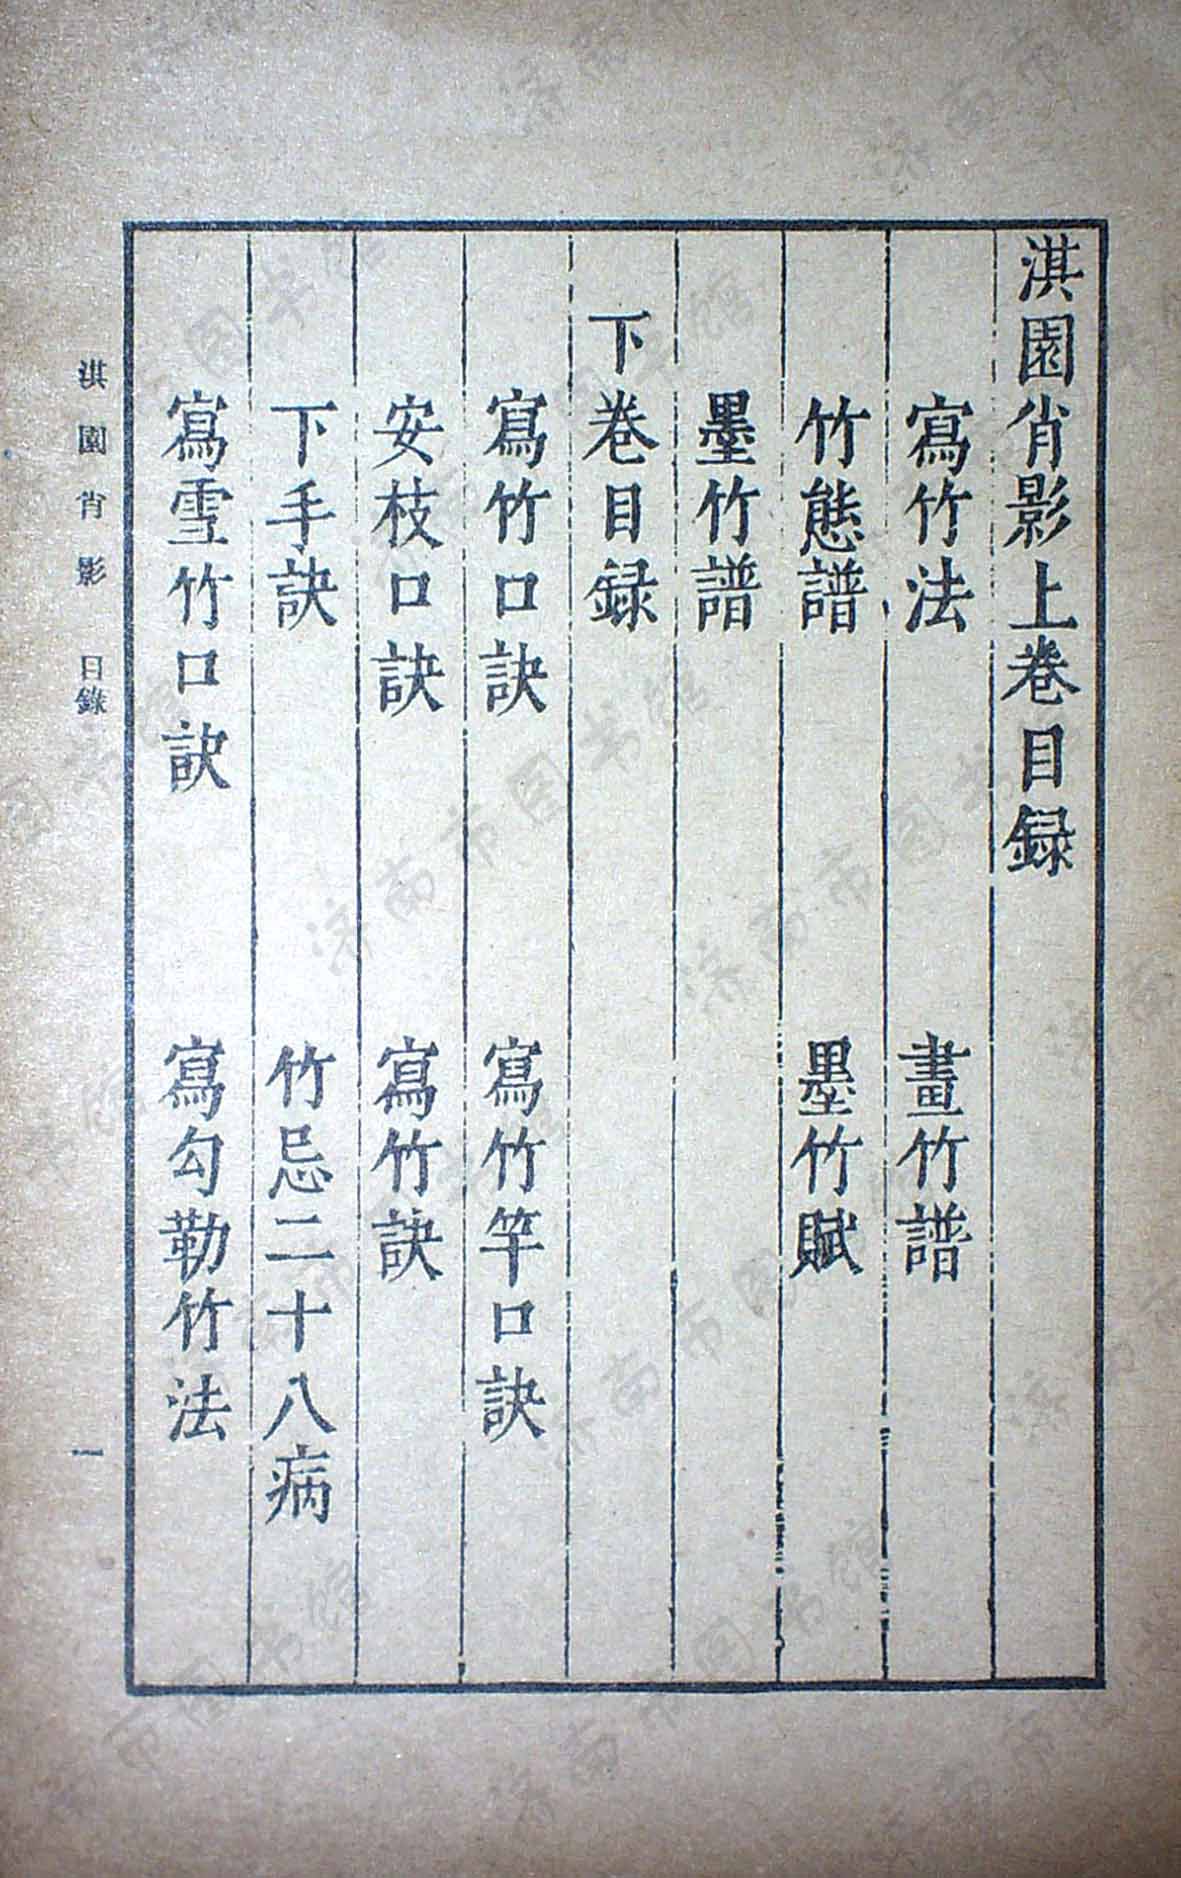 淇園肖影上卷目録
寫竹法　畫竹譜
竹態譜　墨竹賦
墨竹譜
下卷目録
寫竹口訣　寫竹竿口訣
安枝口訣　寫竹訣
下手訣　竹忌二十八病
寫雪竹口訣　寫勾勒竹法
淇園肖影　目錄　一
济南市图书馆